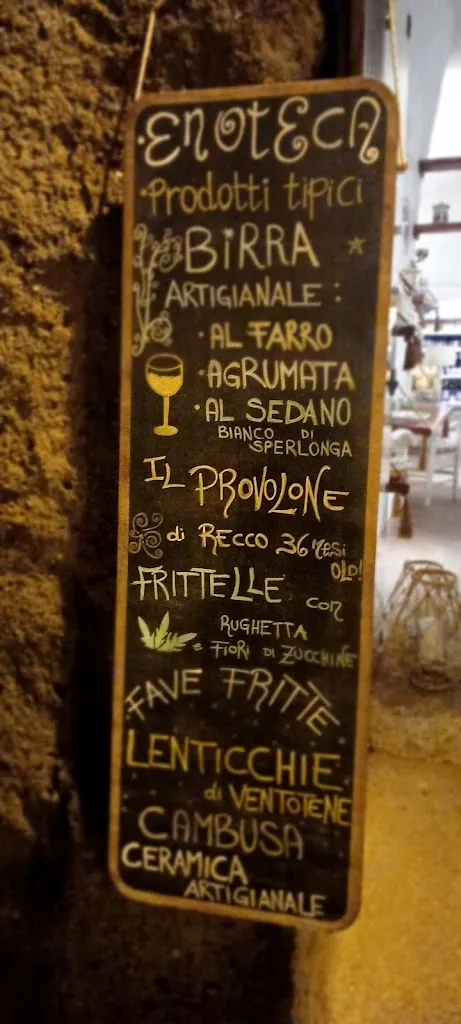 ·ENOTECA
·Prodotti tipici
BIRRA
ARTIGIANALE:
·AL FARRO
·AGRUMATA
·AL SEDANO
BIANCO DI
SPERLONGA
IL PROVOLONE
di RECCO 36 MESI
OLD!
FRITTELLE con
RUGHETTA
e FIORI DI ZUCCHINE
FAVE FRITTE
LENTICCHIE
di VENTOTENE
CAMBUSA
CERAMICA
ARTIGIANALE